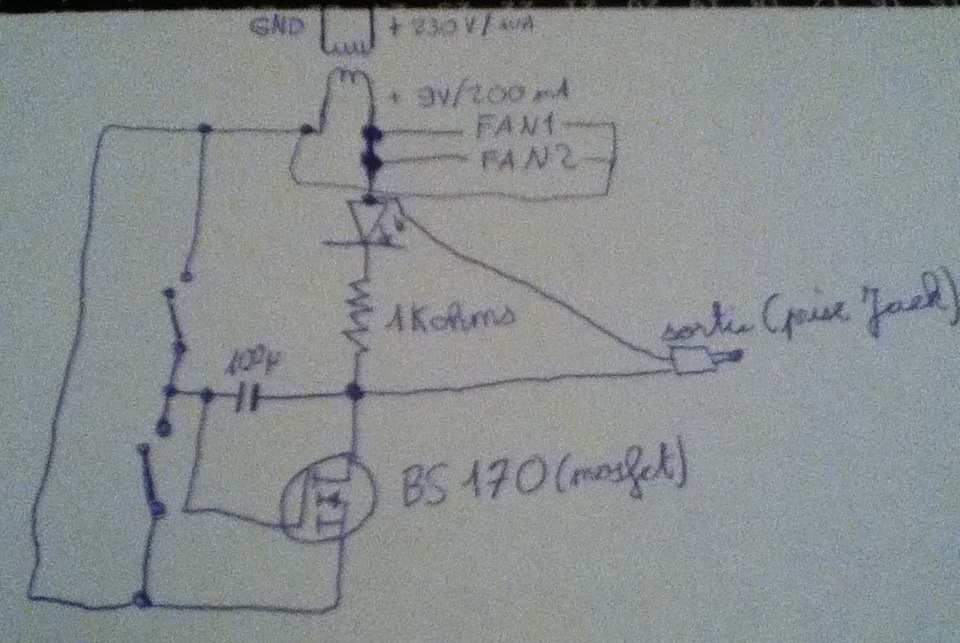 GND + 230V/
+ 9V/200 mA
FAN1
FAN2
1Kohms
sortie (prise Jack)
100µ
BS 170 (mosfet)